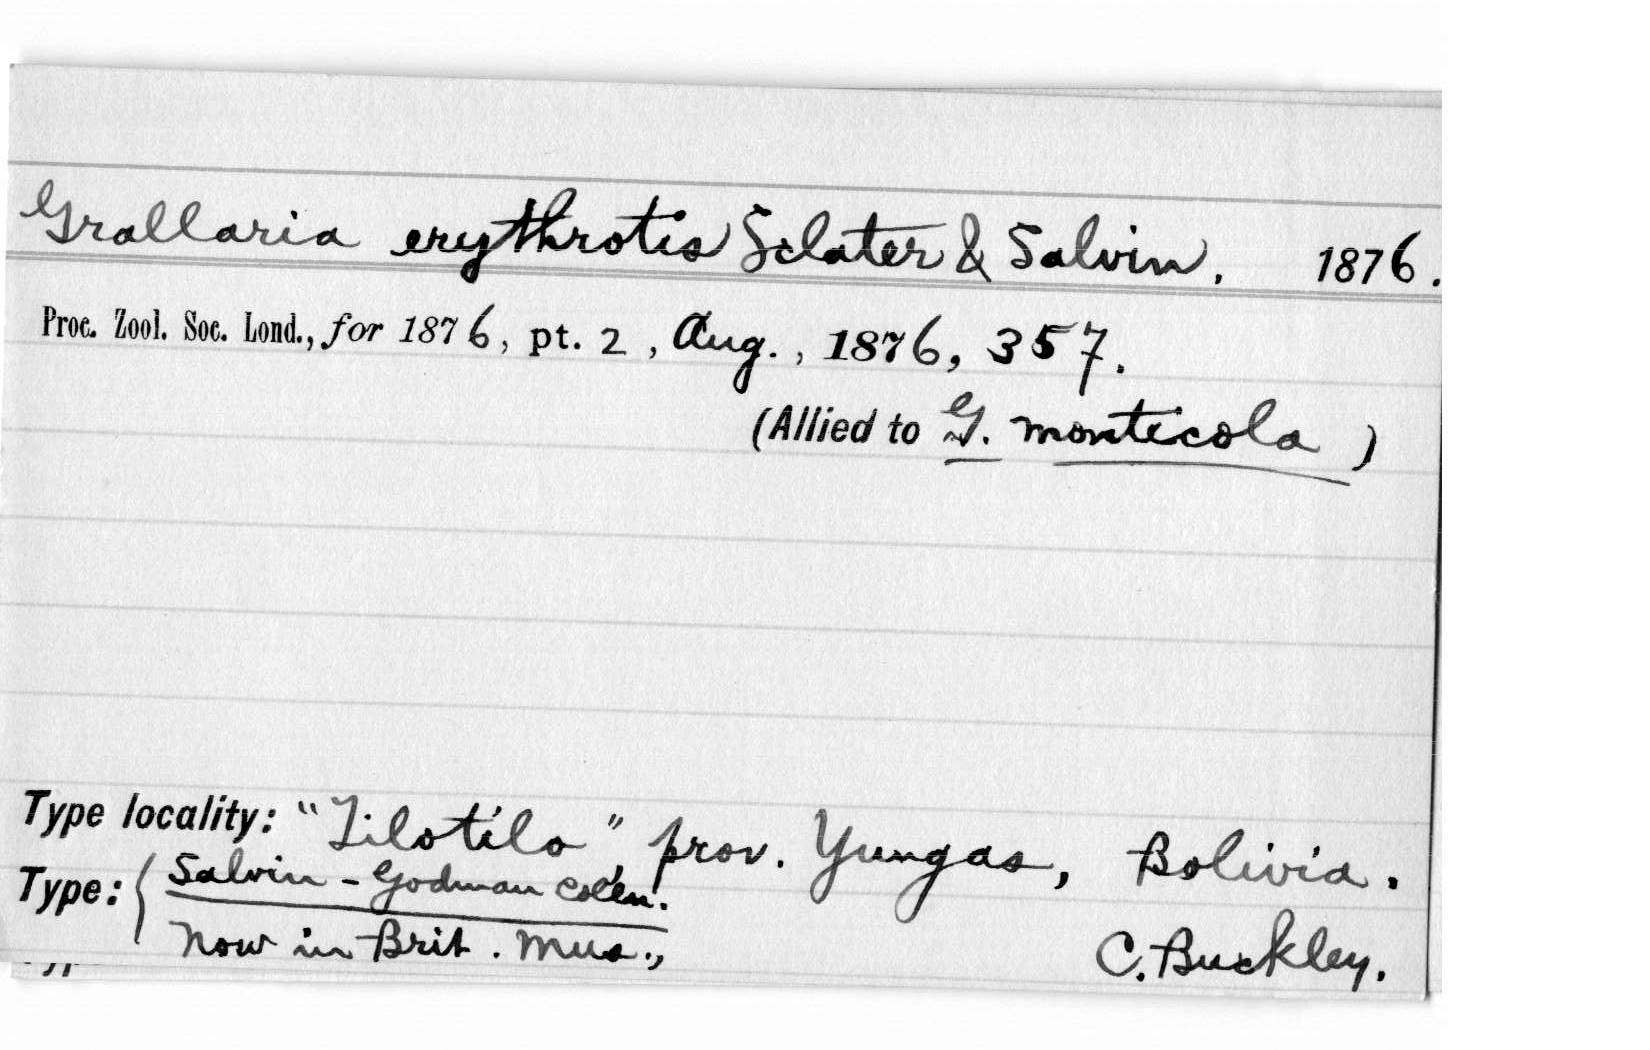 Grallaria erythrotis Sclater & Salvin. 1876.
Proc. Zool. Soc. Lond., for 1876, pt. 2, Aug., 1876, 357.
(Allied to G. monticola)
Type locality: "Tilotilo", prov. Yungas, Bolivia.
Type: { Salvin-Godman col'en.
Now in Brit. Mus.,
C. Buckley.